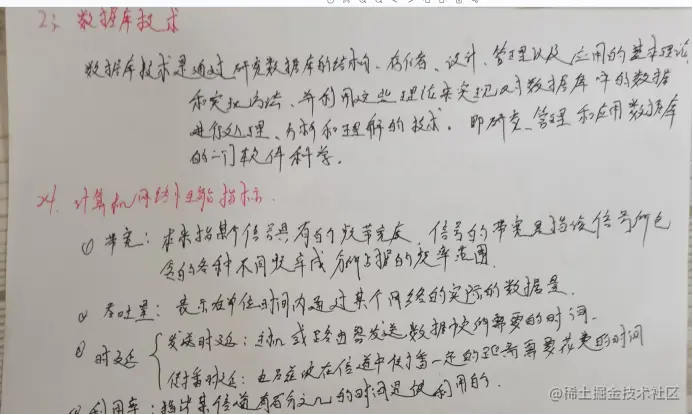 2、数据库技术
数据库技术是通过研究数据库的结构、存储、设计、管理以及应用的基本理论
和实现方法、并利用这些理论来实现对数据库中的数据
进行处理、分析和理解的技术。即研究、管理和应用数据库
的一门软件科学。
计算机网络性能指标.
带宽：本来指某个信号具有的频带宽度，信号的带宽是指该信号所包
含的各种不同频率成分所占据的频率范围.
吞吐量：表示在单位时间内通过某个网络的实际的数据量.
时延
发送时延：主机或路由器发送数据帧所需要的时间.
传播时延：电磁波在信道中传播一定的距离需要花费的时间
利用率：指出某信道有百分之几的时间是被利用的.
@稀土掘金技术社区